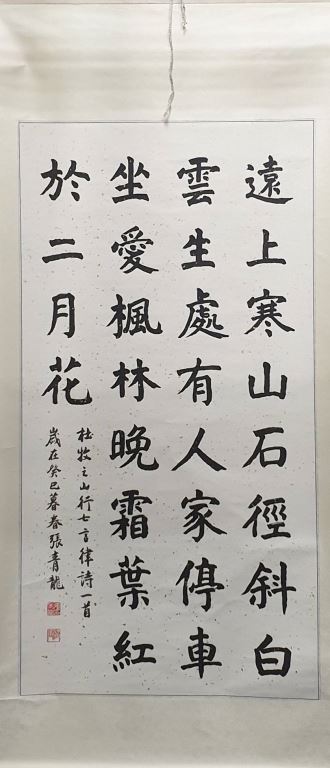 遠上寒山石徑斜白
雲生處有人家停車
坐愛楓林晚霜葉紅
於二月花
杜牧之山行七言律詩一首
歲在癸巳暮春張青龍